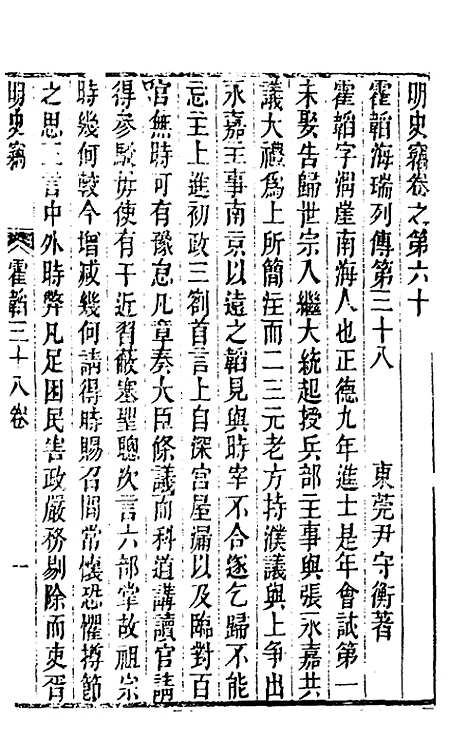 明史竊卷之第六十
霍韜海瑞列傳第三十八
東莞尹守衡著
霍韜字渭崖南海人也正德九年進士是年會試第一
未娶告歸世宗入繼大統起授兵部主事與張永嘉共
議大禮為上所簡注而二三元老方持濮議與上爭出
永嘉主事南京以遠之韜見與時宰不合遂乞歸不能
忘主上進初政三劄首言上自深宮屋漏以及臨對百
官無時可有豫怠凡章奏大臣條議而科道講讀官請
得參駁毋使有干近習蔽塞聖聰次言六部掌故祖宗
時幾何較今增減幾何請得時賜召問常懷恐懼撙節
之思三言中外時弊凡足困民害政嚴務剔除而吏胥
明史竊
霍韜三十八卷
一